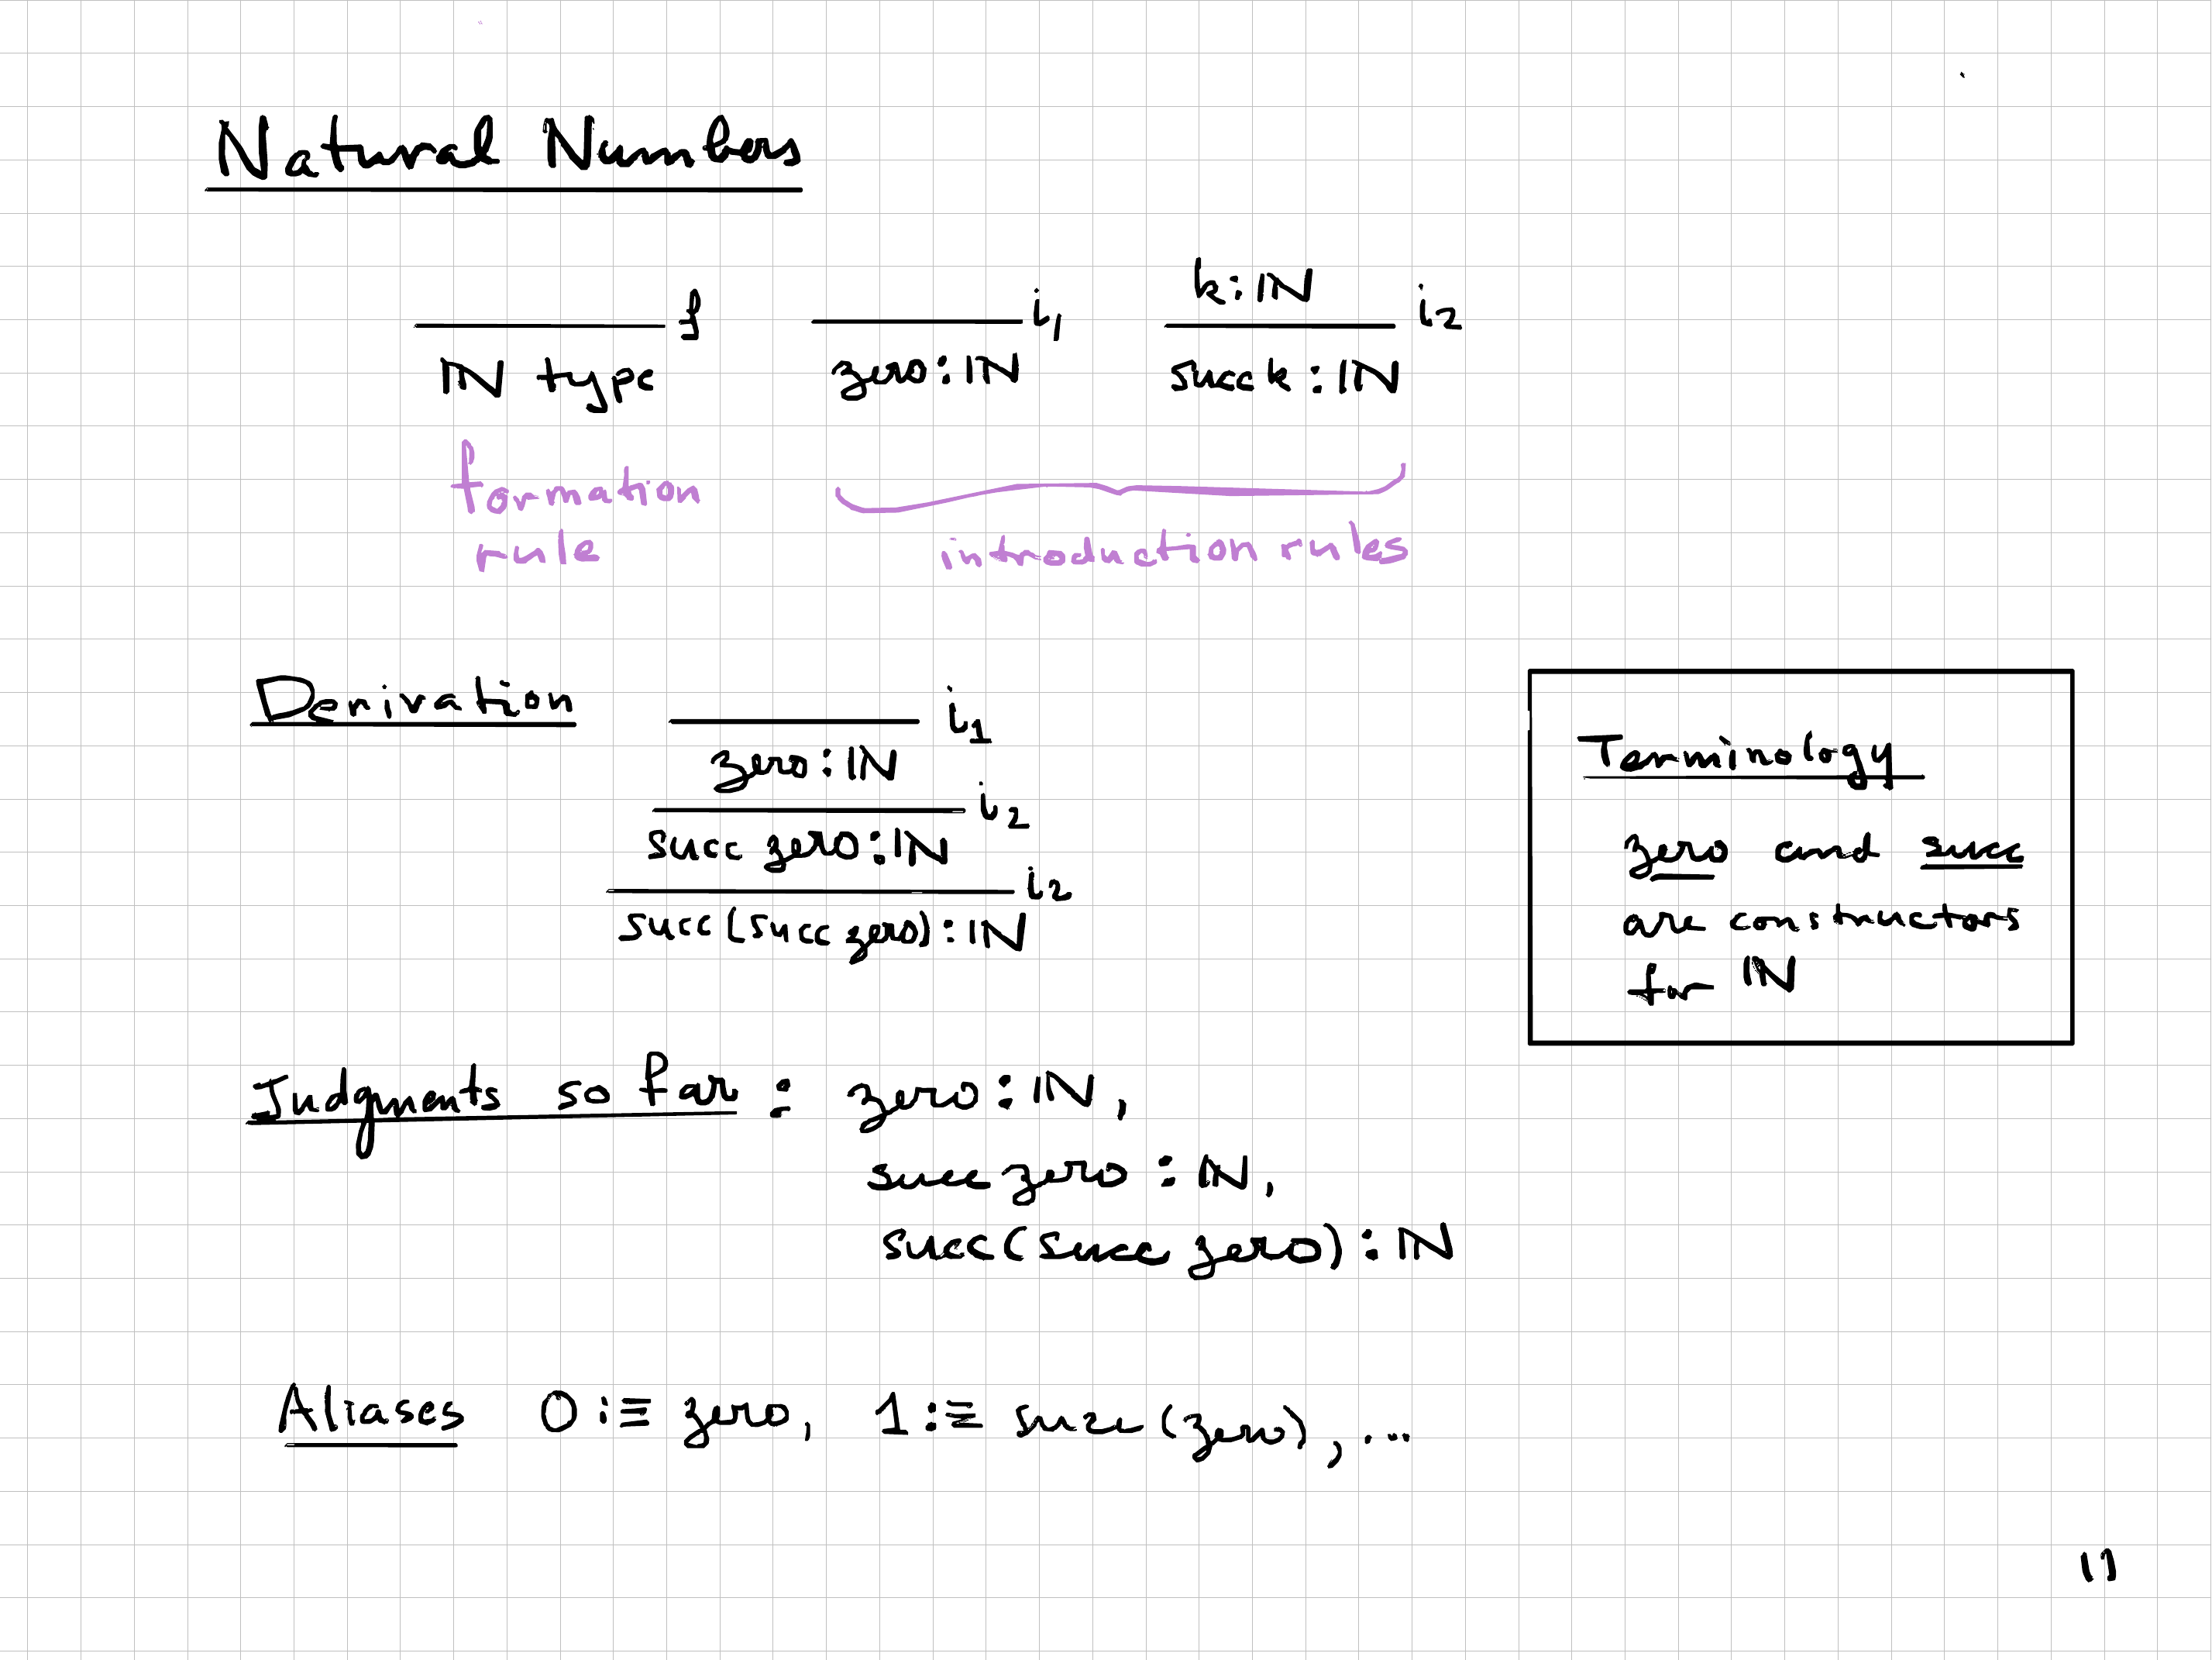 Natural Numbers
k:ℕ
f i₁ i₂
ℕ type zero:ℕ succ k:ℕ
formation
rule introduction rules
Derivation i₁
zero:ℕ i₂
succ zero:ℕ i₂
succ(succ zero):ℕ
Terminology
zero and succ
are constructors
for ℕ
Judgments so far: zero:ℕ,
succ zero:ℕ,
succ(succ zero):ℕ
Aliases 0:≡ zero, 1:≡ succ(zero), ...
11